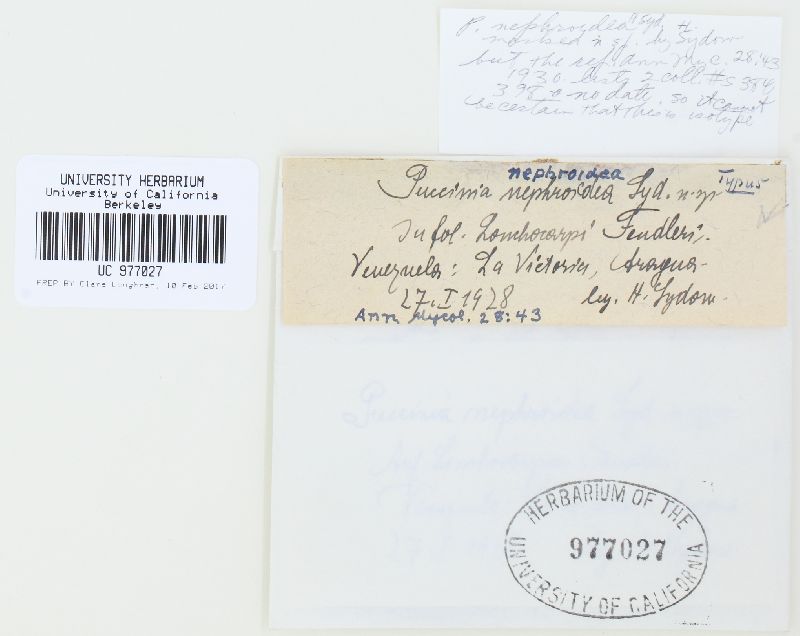 P. nephroidea Syd. H.
marked n. sp. by Sydow
but the ref. Ann Myc. 28:43
1930 lists 2 coll. #s 384
398 no date, so cannot
be certain that this is isotype
UNIVERSITY HERBARIUM
University of California
Berkeley
UC 977027
PREP BY Clare Loughran, 10 Feb 2017
nephroidea
Typus
Puccinia nephroidea Syd. n. sp.
In fol. Lonchocarpi Fendleri.
Venezuela: La Victoria, Aragua
27.I.1928 leg. H. Sydow.
Ann Mycol. 28:43
HERBARIUM OF THE
977027
UNIVERSITY OF CALIFORNIA